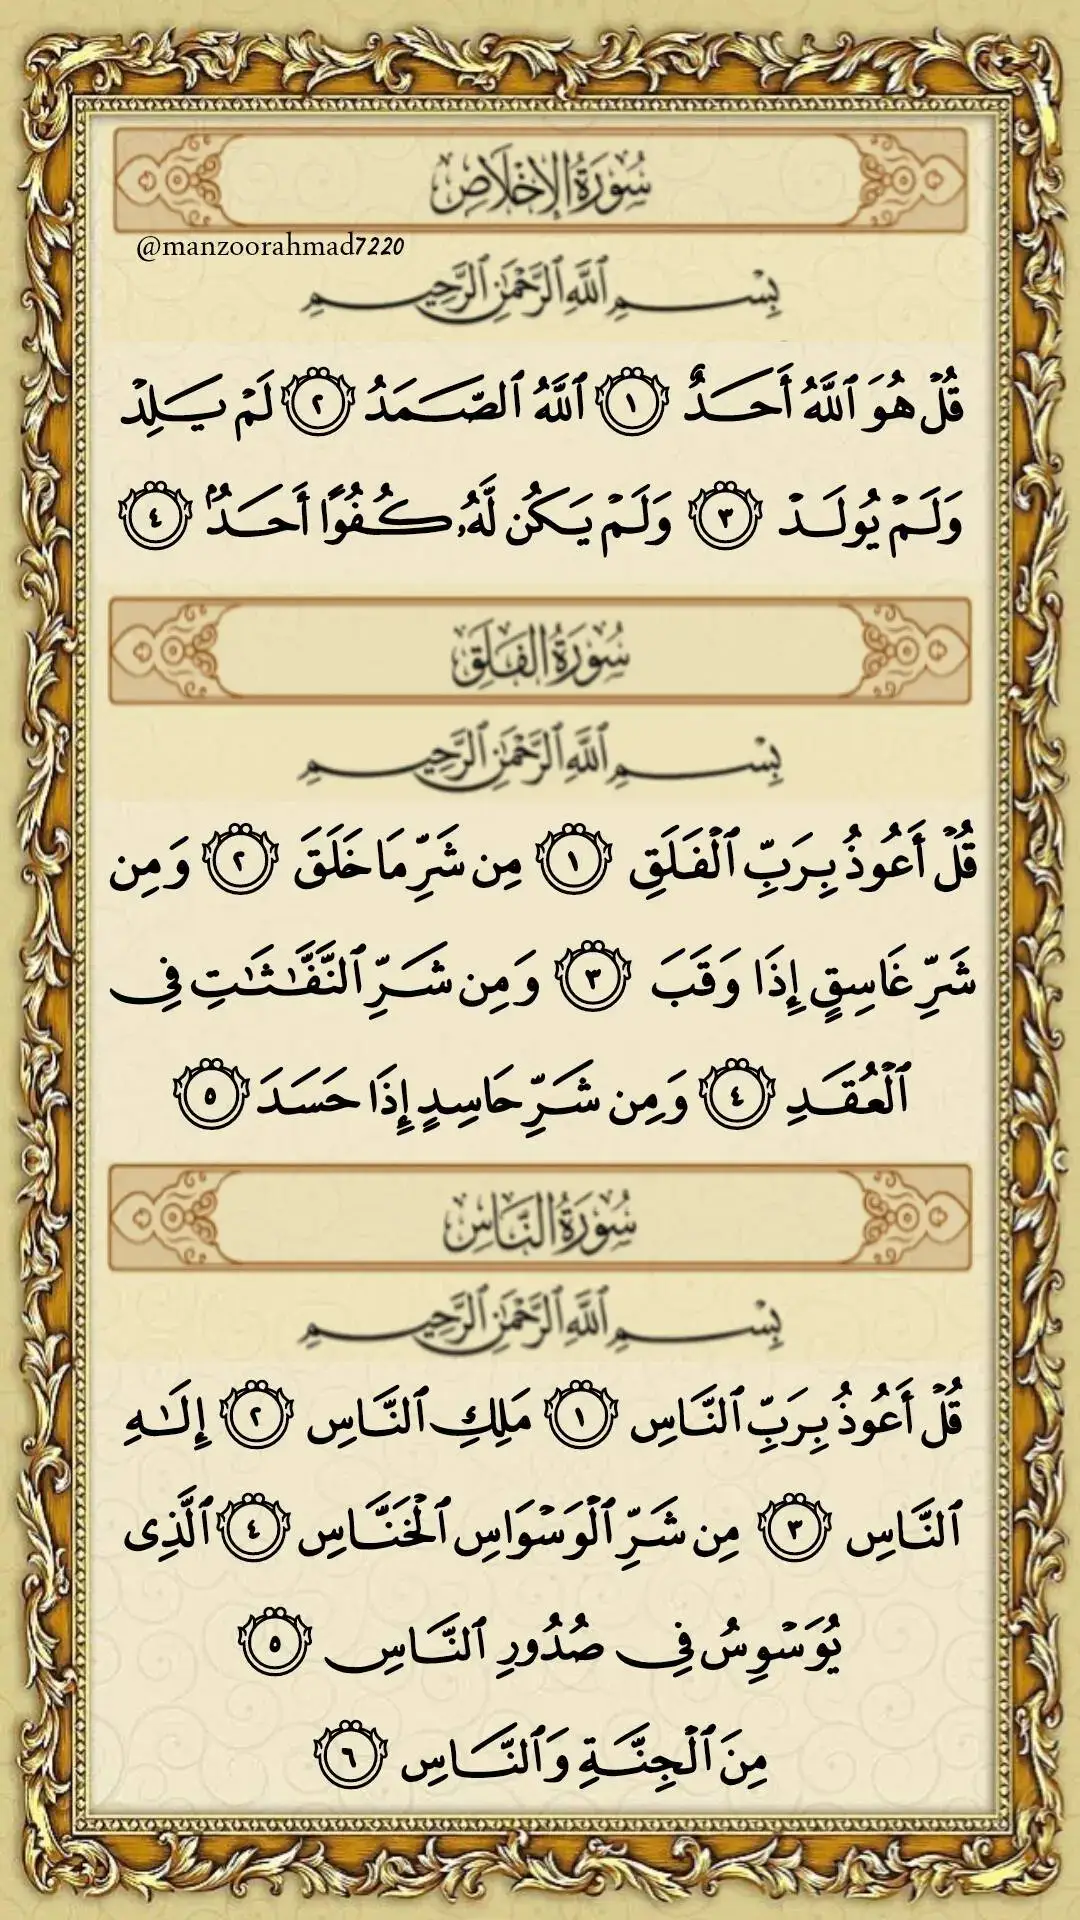 سُورَةُ الإِخْلَاصِ
@manzoorahmad7220
بِسْمِ ٱللَّهِ ٱلرَّحْمَٰنِ ٱلرَّحِيمِ
قُلْ هُوَ ٱللَّهُ أَحَدٌ ١ ٱللَّهُ ٱلصَّمَدُ ٢ لَمْ يَلِدْ
وَلَمْ يُولَدْ ٣ وَلَمْ يَكُن لَّهُۥ كُفُوًا أَحَدٌۢ ٤
سُورَةُ الفَلَقِ
بِسْمِ ٱللَّهِ ٱلرَّحْمَٰنِ ٱلرَّحِيمِ
قُلْ أَعُوذُ بِرَبِّ ٱلْفَلَقِ ١ مِن شَرِّ مَا خَلَقَ ٢ وَمِن
شَرِّ غَاسِقٍ إِذَا وَقَبَ ٣ وَمِن شَرِّ ٱلنَّفَّٰثَٰتِ فِى
ٱلْعُقَدِ ٤ وَمِن شَرِّ حَاسِدٍ إِذَا حَسَدَ ٥
سُورَةُ النَّاسِ
بِسْمِ ٱللَّهِ ٱلرَّحْمَٰنِ ٱلرَّحِيمِ
قُلْ أَعُوذُ بِرَبِّ ٱلنَّاسِ ١ مَلِكِ ٱلنَّاسِ ٢ إِلَٰهِ
ٱلنَّاسِ ٣ مِن شَرِّ ٱلْوَسْوَاسِ ٱلْخَنَّاسِ ٤ ٱلَّذِى
يُوَسْوِسُ فِى صُدُورِ ٱلنَّاسِ ٥
مِنَ ٱلْجِنَّةِ وَٱلنَّاسِ ٦